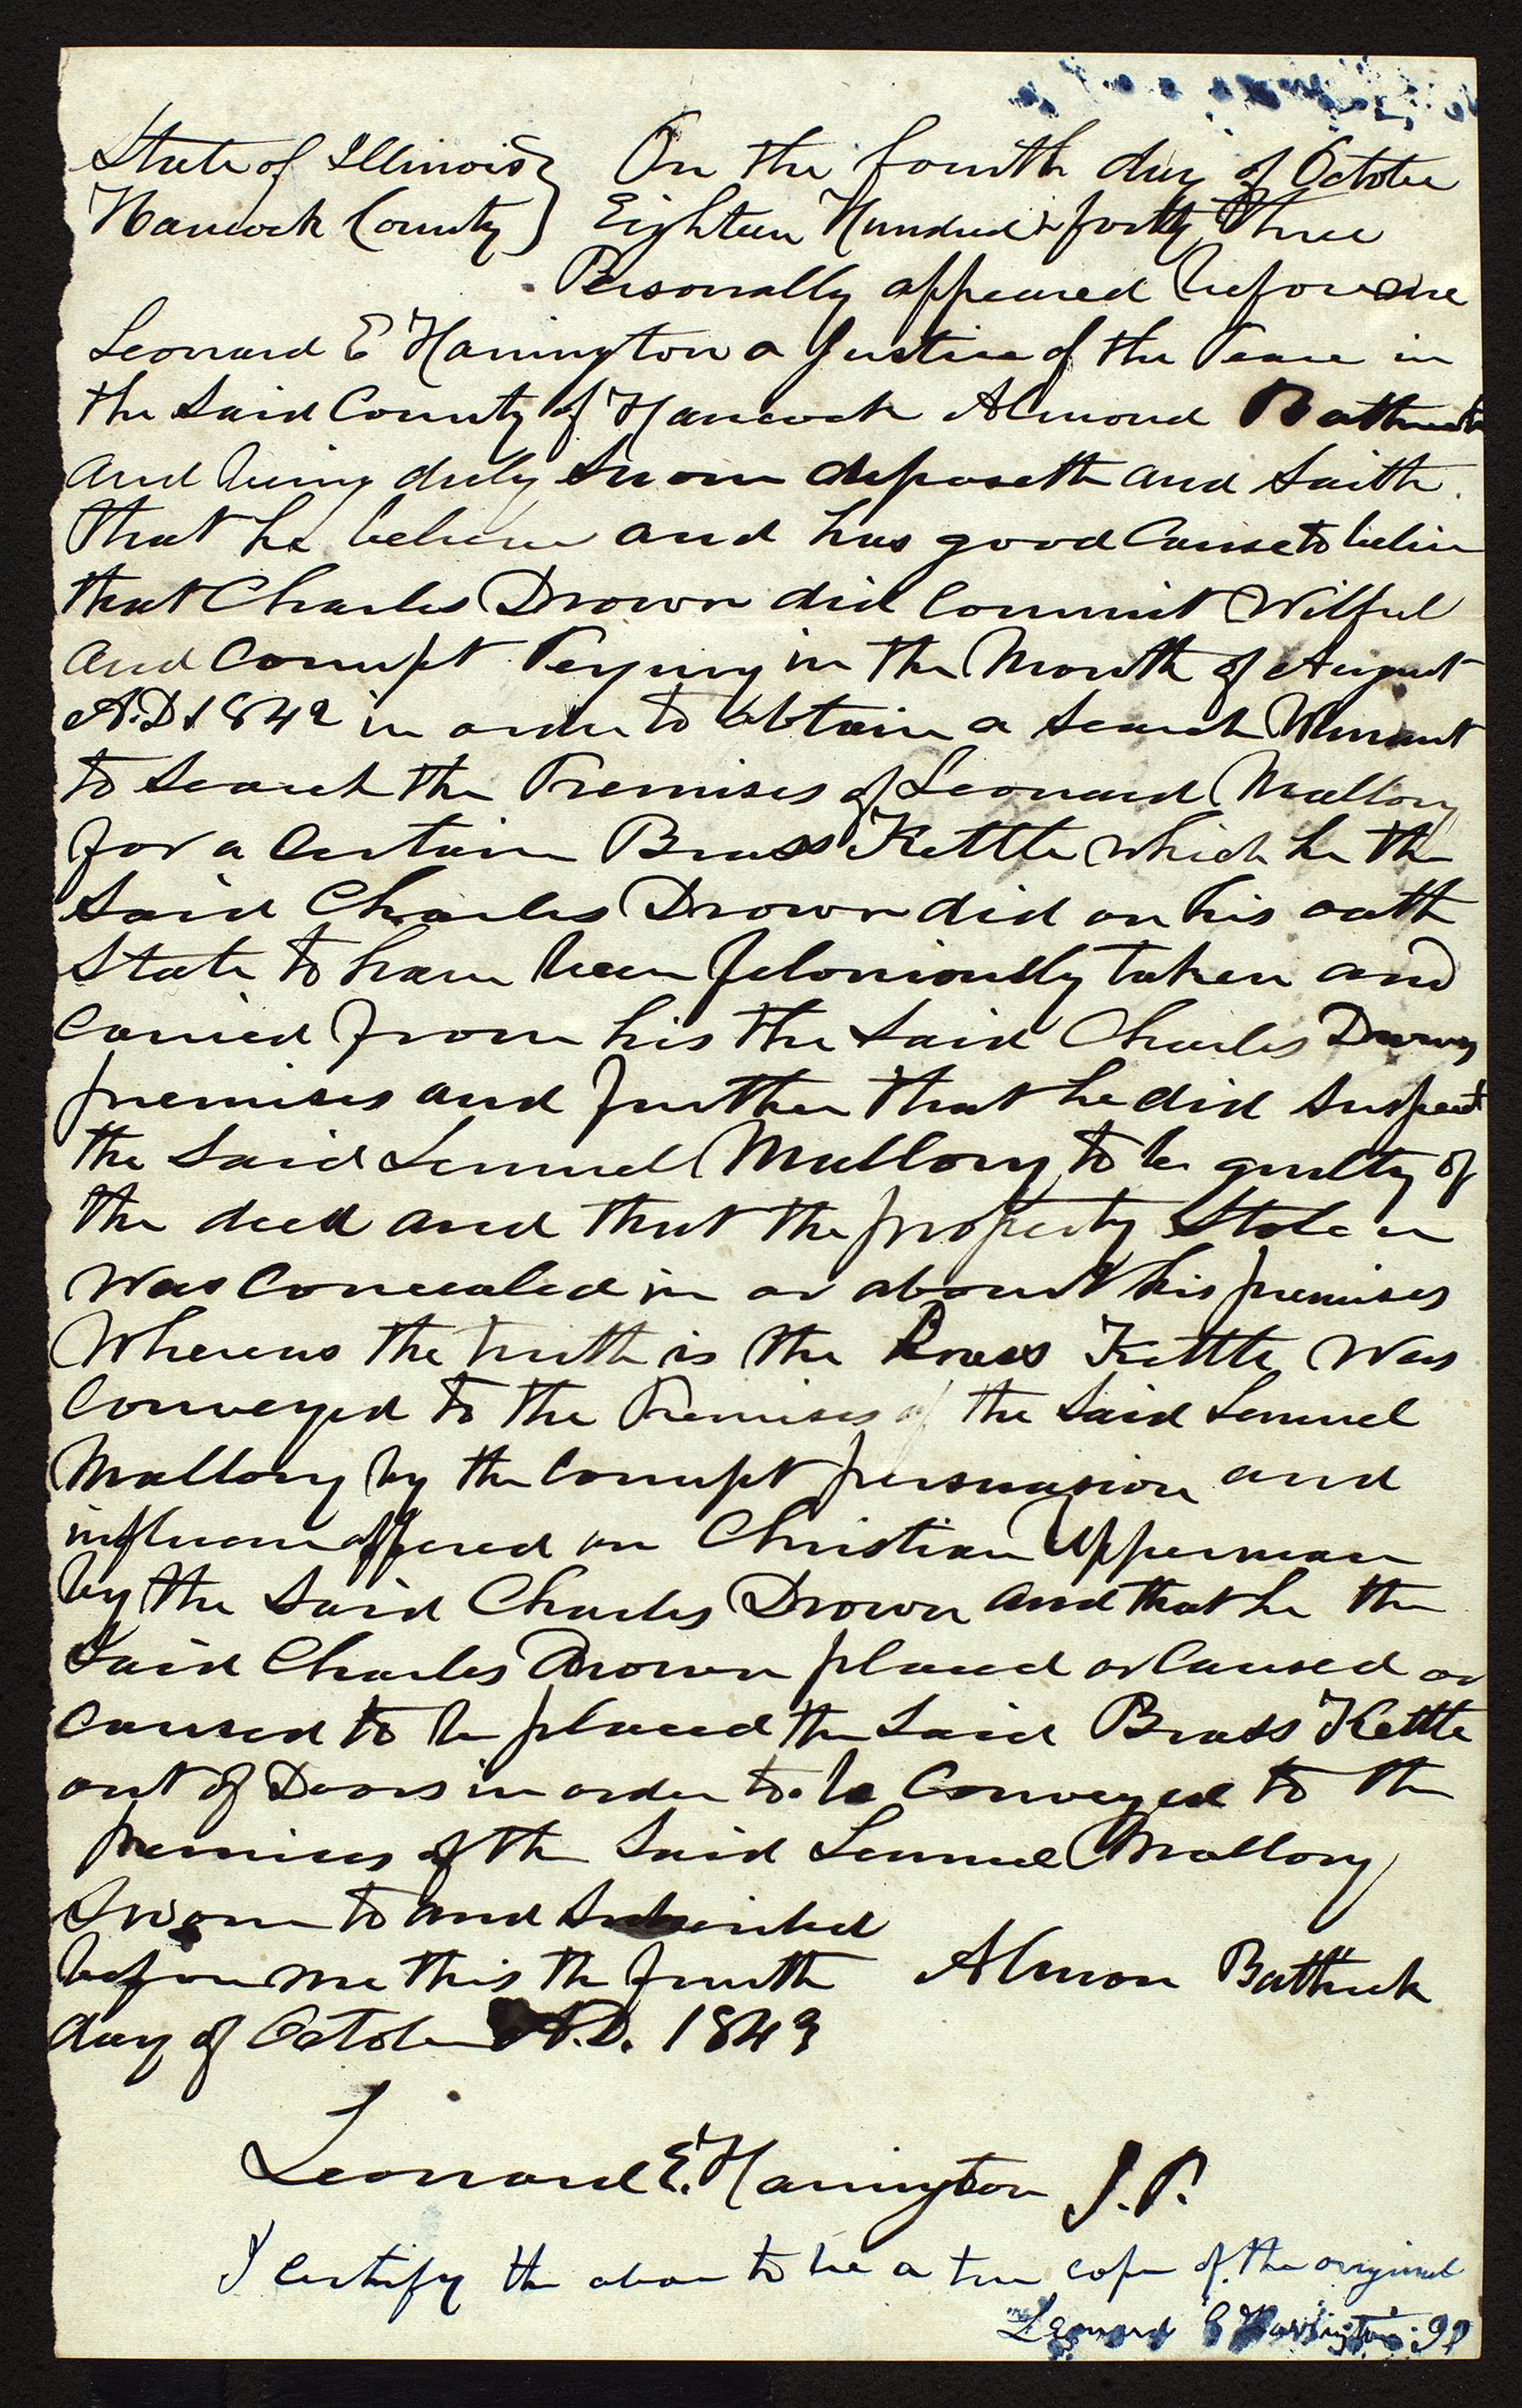 State of Illinois } On the fourth day of October
Hancock County } Eighteen Hundred & forty Three
Personally appeared before me
Leonard E Harrington a Justice of the Peace in
the Said County of Hancock Almond Bathrick
and being duly Sworn deposeth and Saith
that he believes and has good Cause to believe
that Charles Drown did Commit Wilful
and Corrupt Perjury in the Month of August
A.D. 1842 in order to obtain a Search Warrant
to Search the Premises of Leonard Mallory
for a Certain Brass Kettle which he the
Said Charles Drown did on his oath
State to have been feloniously taken and
Carried from his the Said Charles Drowns
premises and further that he did Suspect
the Said Lemuel Mallory to be guilty of
the deed and that the property Stolen
Was Concealed in or about his premises
Whereas the truth is the Brass Kettle Was
Conveyed to the Premises of the Said Lemuel
Mallory by the Corrupt persuasion and
influence offered on Christian Upperman
by the Said Charles Drown and that he the
Said Charles Drown placed or Caused or
Caused to be placed the Said Brass Kettle
out of Doors in order to be Conveyed to the
premises of the Said Lemuel Mallory
Sworn to and Subscribed
before me this the fourth Almon Bathrick
day of October A.D. 1843
Leonard E. Harrington J.P.
I certify the above to be a true copy of the original
Leonard E Harrington JP